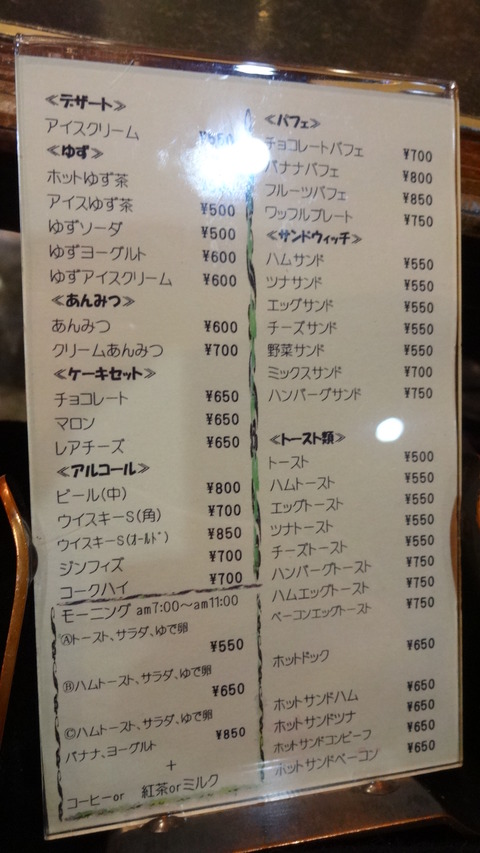 ≪デザート≫
アイスクリーム
≪ゆず≫
ホットゆず茶
アイスゆず茶 ¥500
ゆずソーダ ¥500
ゆずヨーグルト ¥600
ゆずアイスクリーム ¥600
≪あんみつ≫
あんみつ ¥600
クリームあんみつ ¥700
≪ケーキセット≫
チョコレート ¥650
マロン ¥650
レアチーズ ¥650
≪アルコール≫
ビール(中) ¥800
ウイスキーS(角) ¥700
ウイスキーS(ｵｰﾙﾄﾞ) ¥850
ジンフィズ ¥700
コークハイ ¥700
モーニング am7:00〜am11:00
Ⓐトースト、サラダ、ゆで卵
¥550
Ⓑハムトースト、サラダ、ゆで卵
¥650
Ⓒハムトースト、サラダ、ゆで卵
バナナ、ヨーグルト ¥850
+
コーヒーor 紅茶orミルク
≪パフェ≫
チョコレートパフェ ¥700
バナナパフェ ¥800
フルーツパフェ ¥850
ワッフルプレート ¥750
≪サンドウィッチ≫
ハムサンド ¥550
ツナサンド ¥550
エッグサンド ¥550
チーズサンド ¥550
野菜サンド ¥550
ミックスサンド ¥700
ハンバーグサンド ¥750
≪トースト類≫
トースト ¥500
ハムトースト ¥550
エッグトースト ¥550
ツナトースト ¥550
チーズトースト ¥550
ハンバーグトースト ¥750
ハムエッグトースト ¥750
ベーコンエッグトースト ¥750
ホットドック ¥650
ホットサンドハム ¥650
ホットサンドツナ ¥650
ホットサンドコンビーフ ¥650
ホットサンドベーコン ¥650